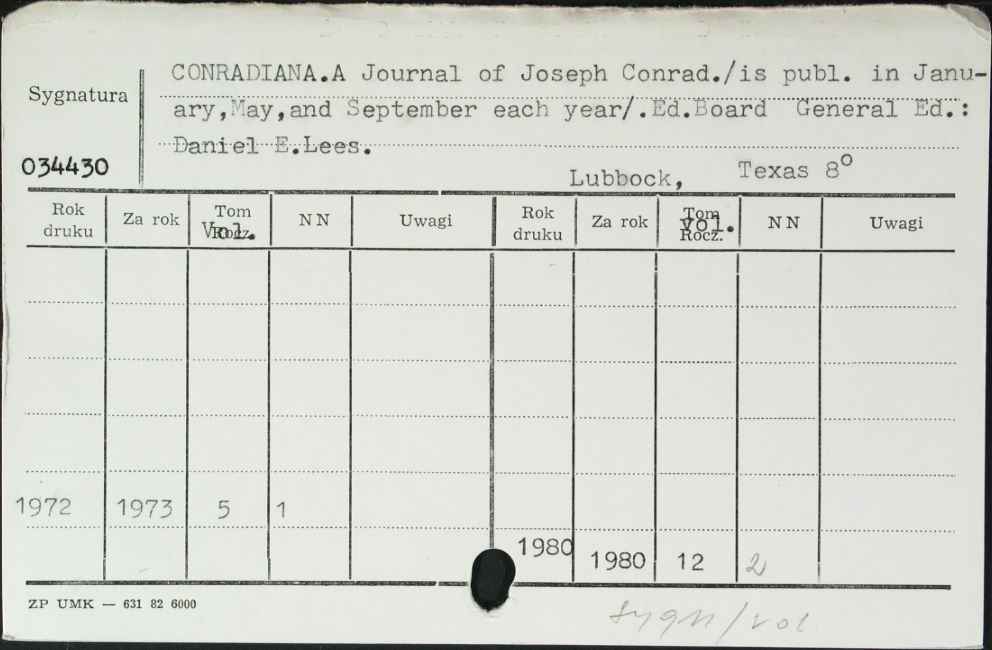 CONRADIANA.A Journal of Joseph Conrad./is publ. in Janu-
Sygnatura
ary,May,and September each year/.Ed.Board General Ed.:
Daniel E.Lees.
034430
Lubbock, Texas 8°
Rok druku Za rok Tom Rocz. Vol. NN Uwagi Rok druku Za rok Tom Rocz. Vol. NN Uwagi
1972 1973 5 1
1980 1980 12 2
ZP UMK — 631 82 6000
sygn/vol